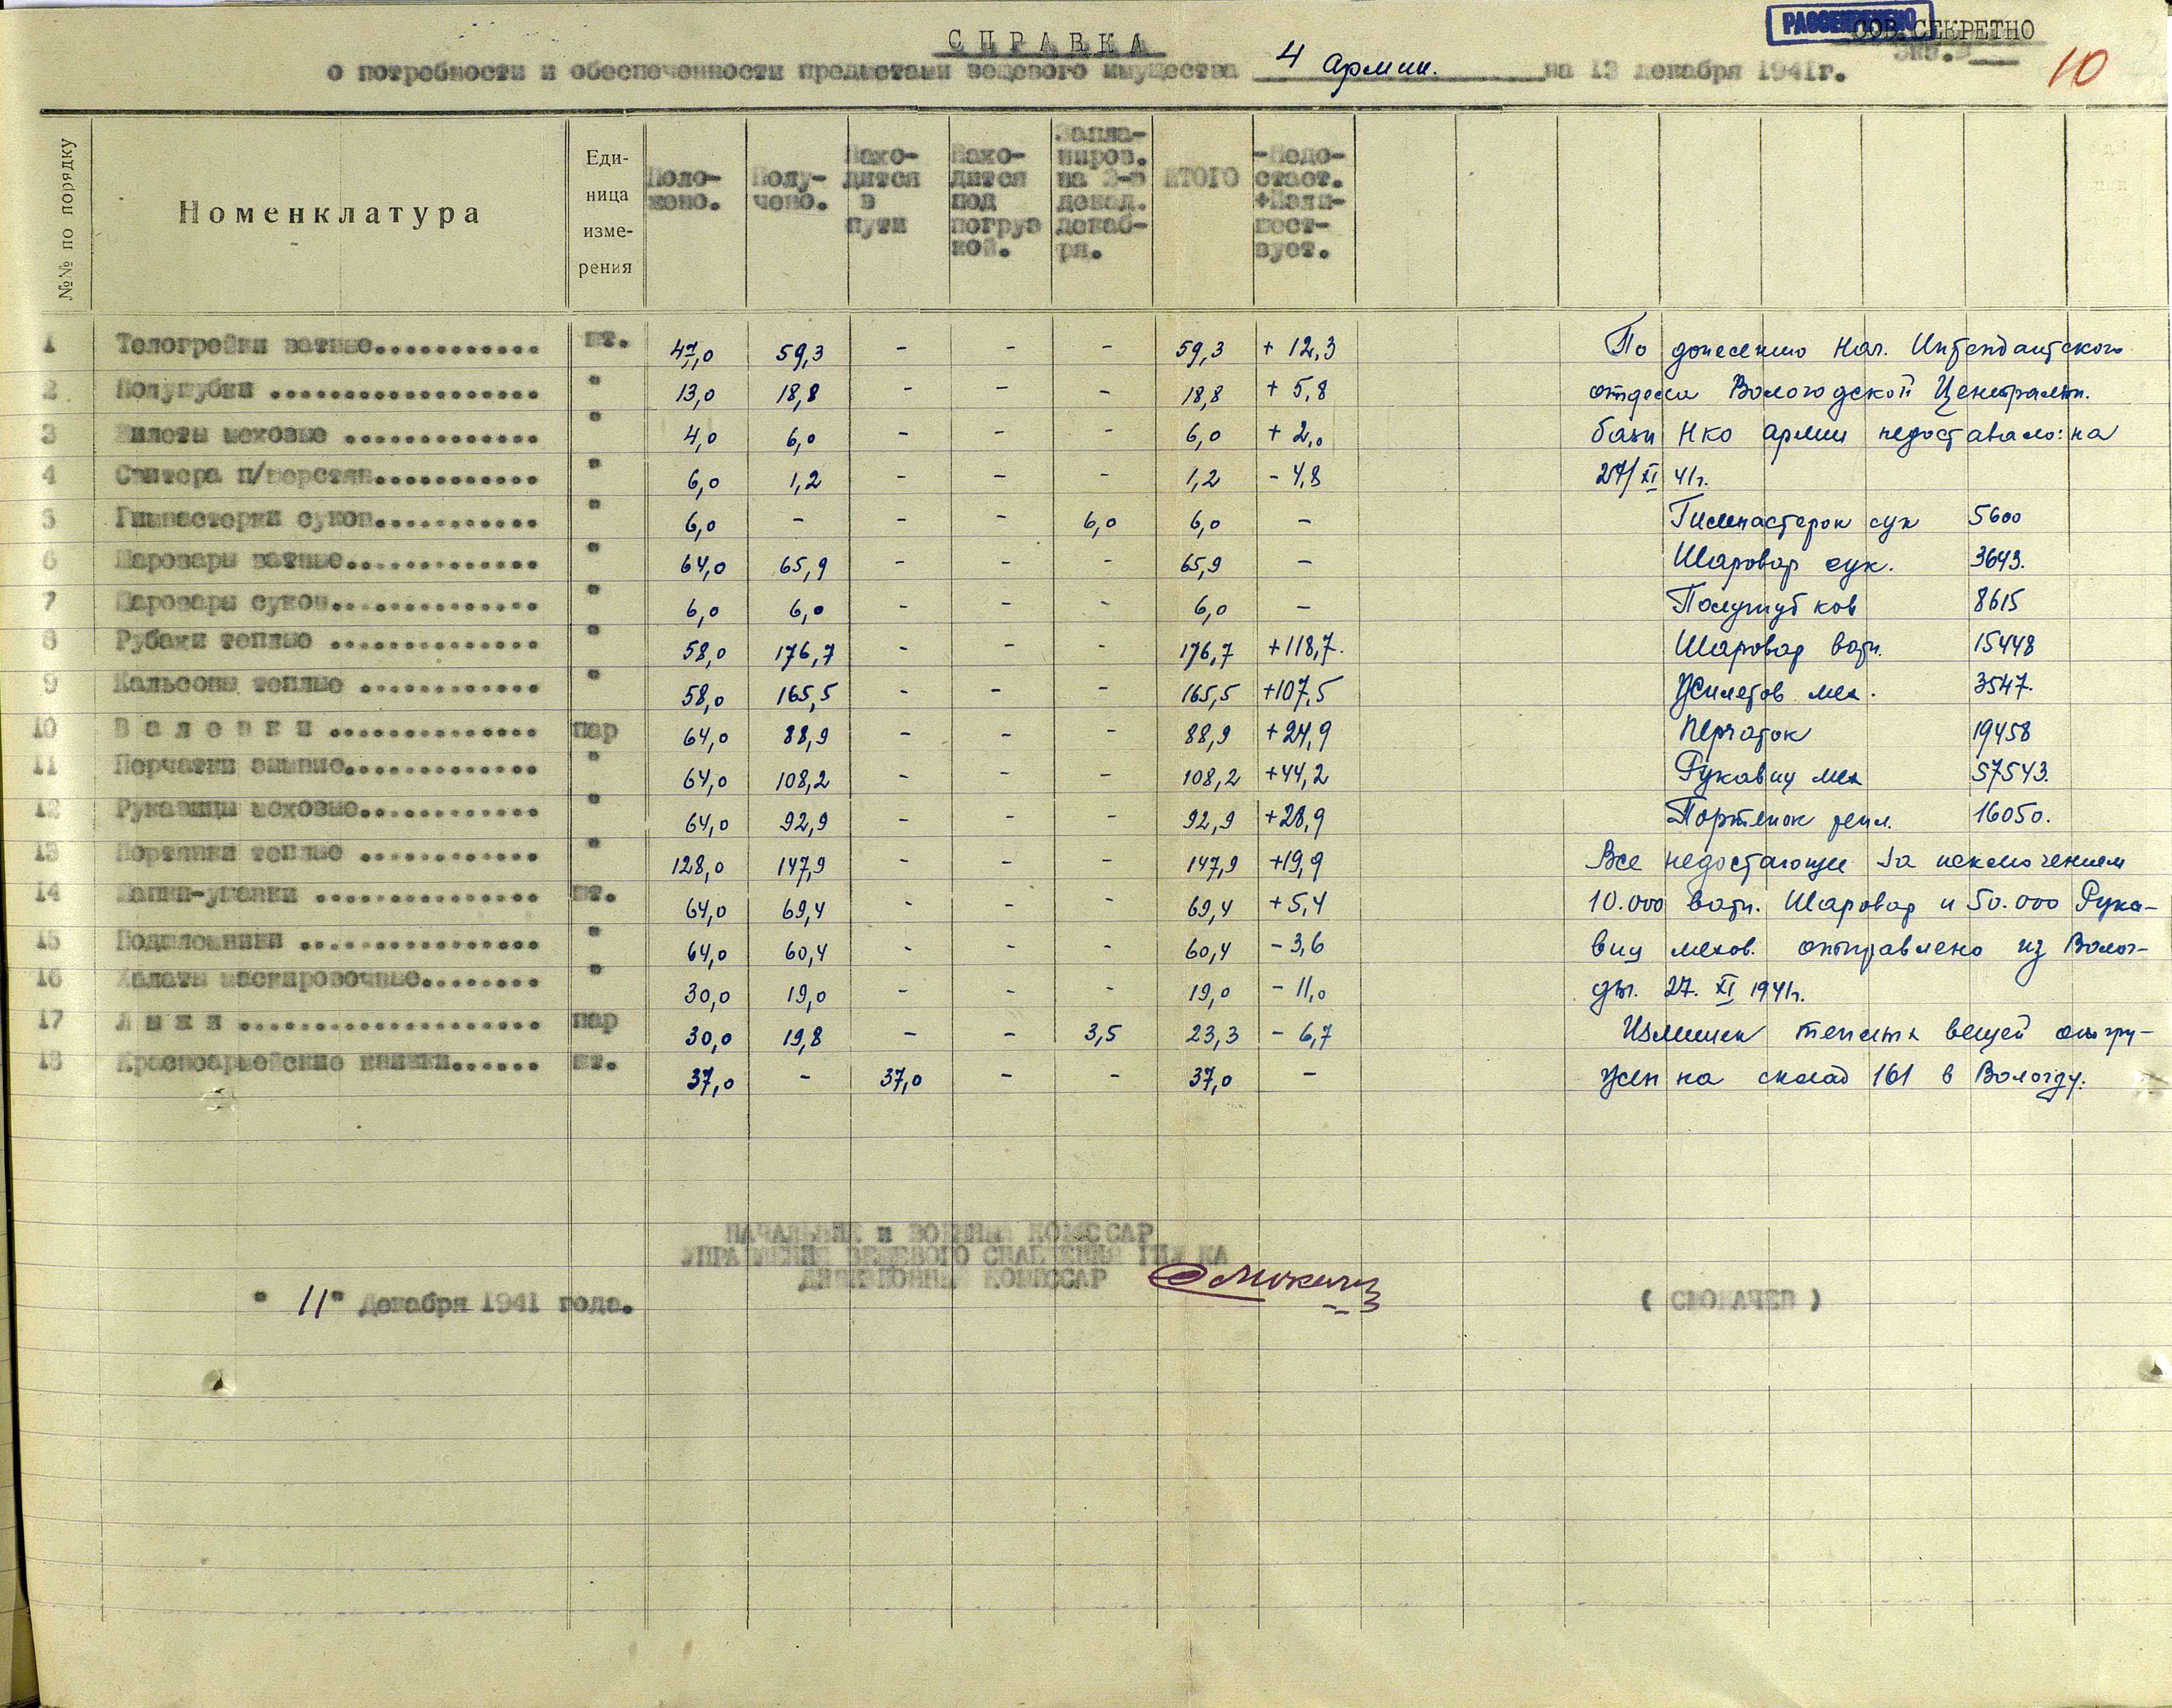 РАССЕКРЕЧЕНО
СОВ.СЕКРЕТНО
Экз.
10
СПРАВКА
о потребности и обеспеченности предметами вещевого имущества 4 армии. на 13 декабря 1941г.
№№ по порядку | Номенклатура | Единица измерения | Положено. | Получено. | Находится в пути | Находится под погрузкой. | Запланиров. на 2-ю декад. декабря. | ИТОГО | -Недостает. +Излишествует.
1 Телогрейки ватные............ шт. 47,0 59,3 - - - 59,3 + 12,3
2 Полушубки .................. " 13,0 18,8 - - - 18,8 + 5,8
3 Жилеты меховые ............. " 4,0 6,0 - - - 6,0 + 2,0
4 Свитера п/шерстян........... " 6,0 1,2 - - - 1,2 - 4,8
5 Гимнастерки сукон........... " 6,0 - - - 6,0 6,0 -
6 Шаровары ватные............. " 64,0 65,9 - - - 65,9 -
7 Шаровары сукон.............. " 6,0 6,0 - - - 6,0 -
8 Рубахи теплые .............. " 58,0 176,7 - - - 176,7 +118,7.
9 Кальсоны теплые ............ " 58,0 165,5 - - - 165,5 +107,5
10 Валенки .............. пар 64,0 88,9 - - - 88,9 +24,9
11 Перчатки зимние............. " 64,0 108,2 - - - 108,2 +44,2
12 Рукавицы меховые............ " 64,0 92,9 - - - 92,9 +28,9
13 Портянки теплые ............ " 128,0 147,9 - - - 147,9 +19,9
14 Шапки-ушанки ............... шт. 64,0 69,4 - - - 69,4 +5,4
15 Подшлемники ................ " 64,0 60,4 - - - 60,4 -3,6
16 Халаты маскировочные........ " 30,0 19,0 - - - 19,0 - 11,0
17 Лыжи .................... пар 30,0 19,8 - - 3,5 23,3 - 6,7
18 Красноармейские книжки...... шт. 37,0 - 37,0 - - 37,0 -
По донесению Нач. Интендантского
отдела Вологодской Централън.
базы НКО армии недоставало: на
27/XI 41г.
Гимнастерок сук 5600
Шаровар сук. 3643.
Полушубков 8615
Шаровар ватн. 15448
Жилетов мех. 3547.
Перчаток 19458
Рукавиц мех 57543.
Портянок тепл. 16050.
Все недостающее за исключением
10.000 ватн. Шаровар и 50.000 Рука-
виц мехов. отправлено из Волог-
ды. 27. XI 1941г.
Излишек теплых вещей отгру-
жен на склад 161 в Вологду.
НАЧАЛЬНИК и ВОЕННЫЙ КОМИССАР
УПРАВЛЕНИЯ ВЕЩЕВОГО СНАБЖЕНИЯ ГИУ КА
ДИВИЗИОННЫЙ КОМИССАР
" 11" Декабря 1941 года.
( СМОКАЧЕВ )